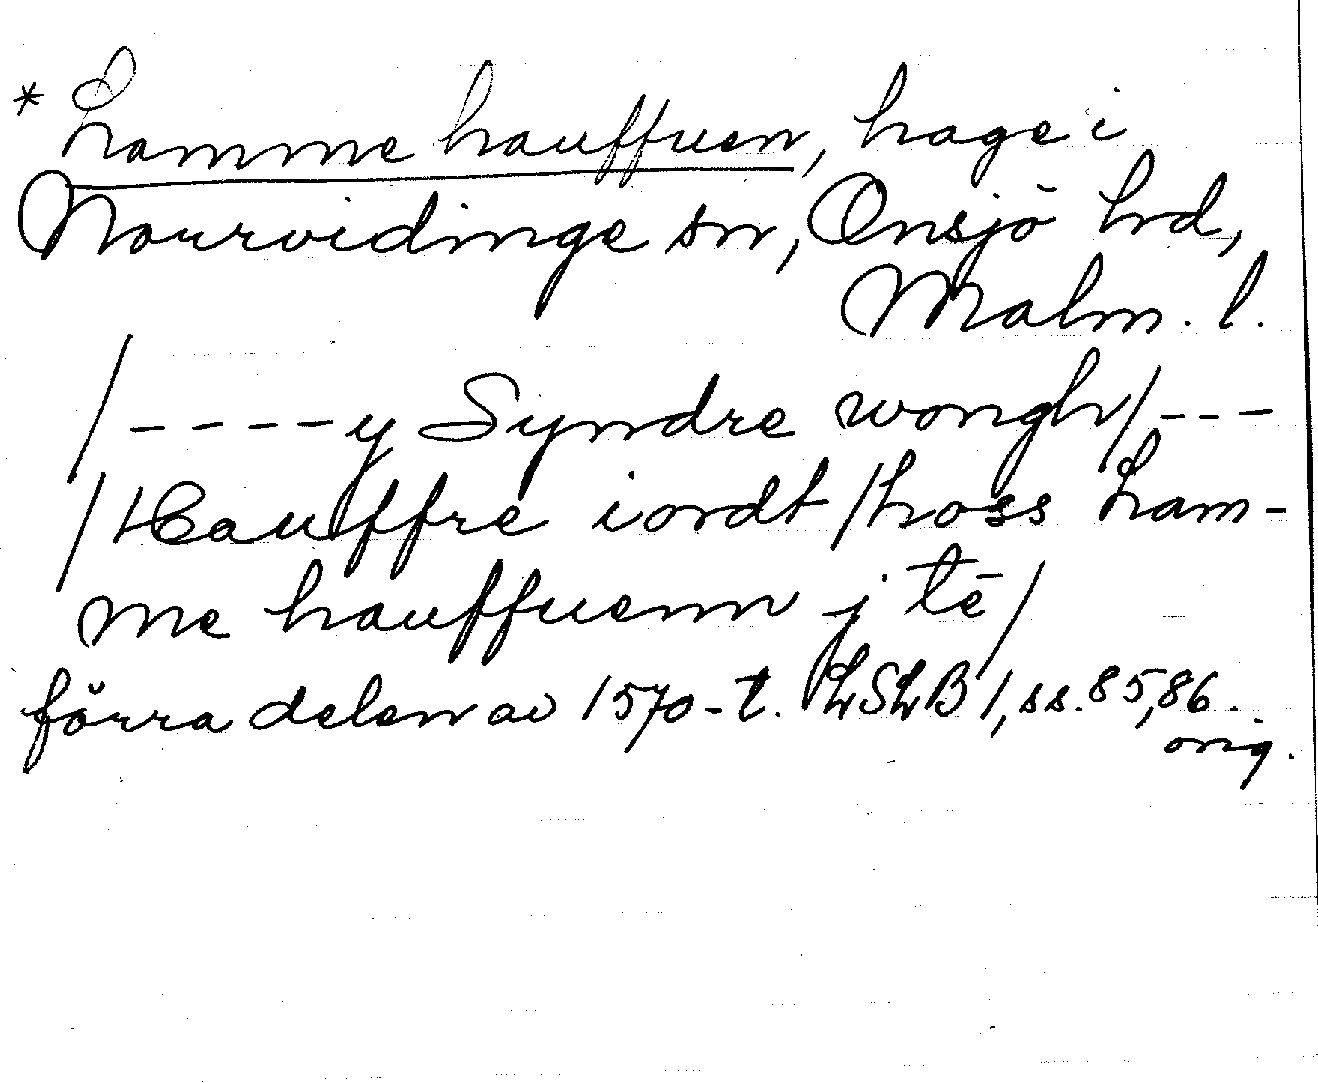 * Lamme hauffuen, hage i
Norrvidinge sn, Onsjö hd,
Malm. l.
/----y Syndre wongh/---
/Hauffre iordt/hoss Lam-
me hauffuenn j tē/
förra delen av 1570-t. LSLB 1, ss. 85, 86.
orig.